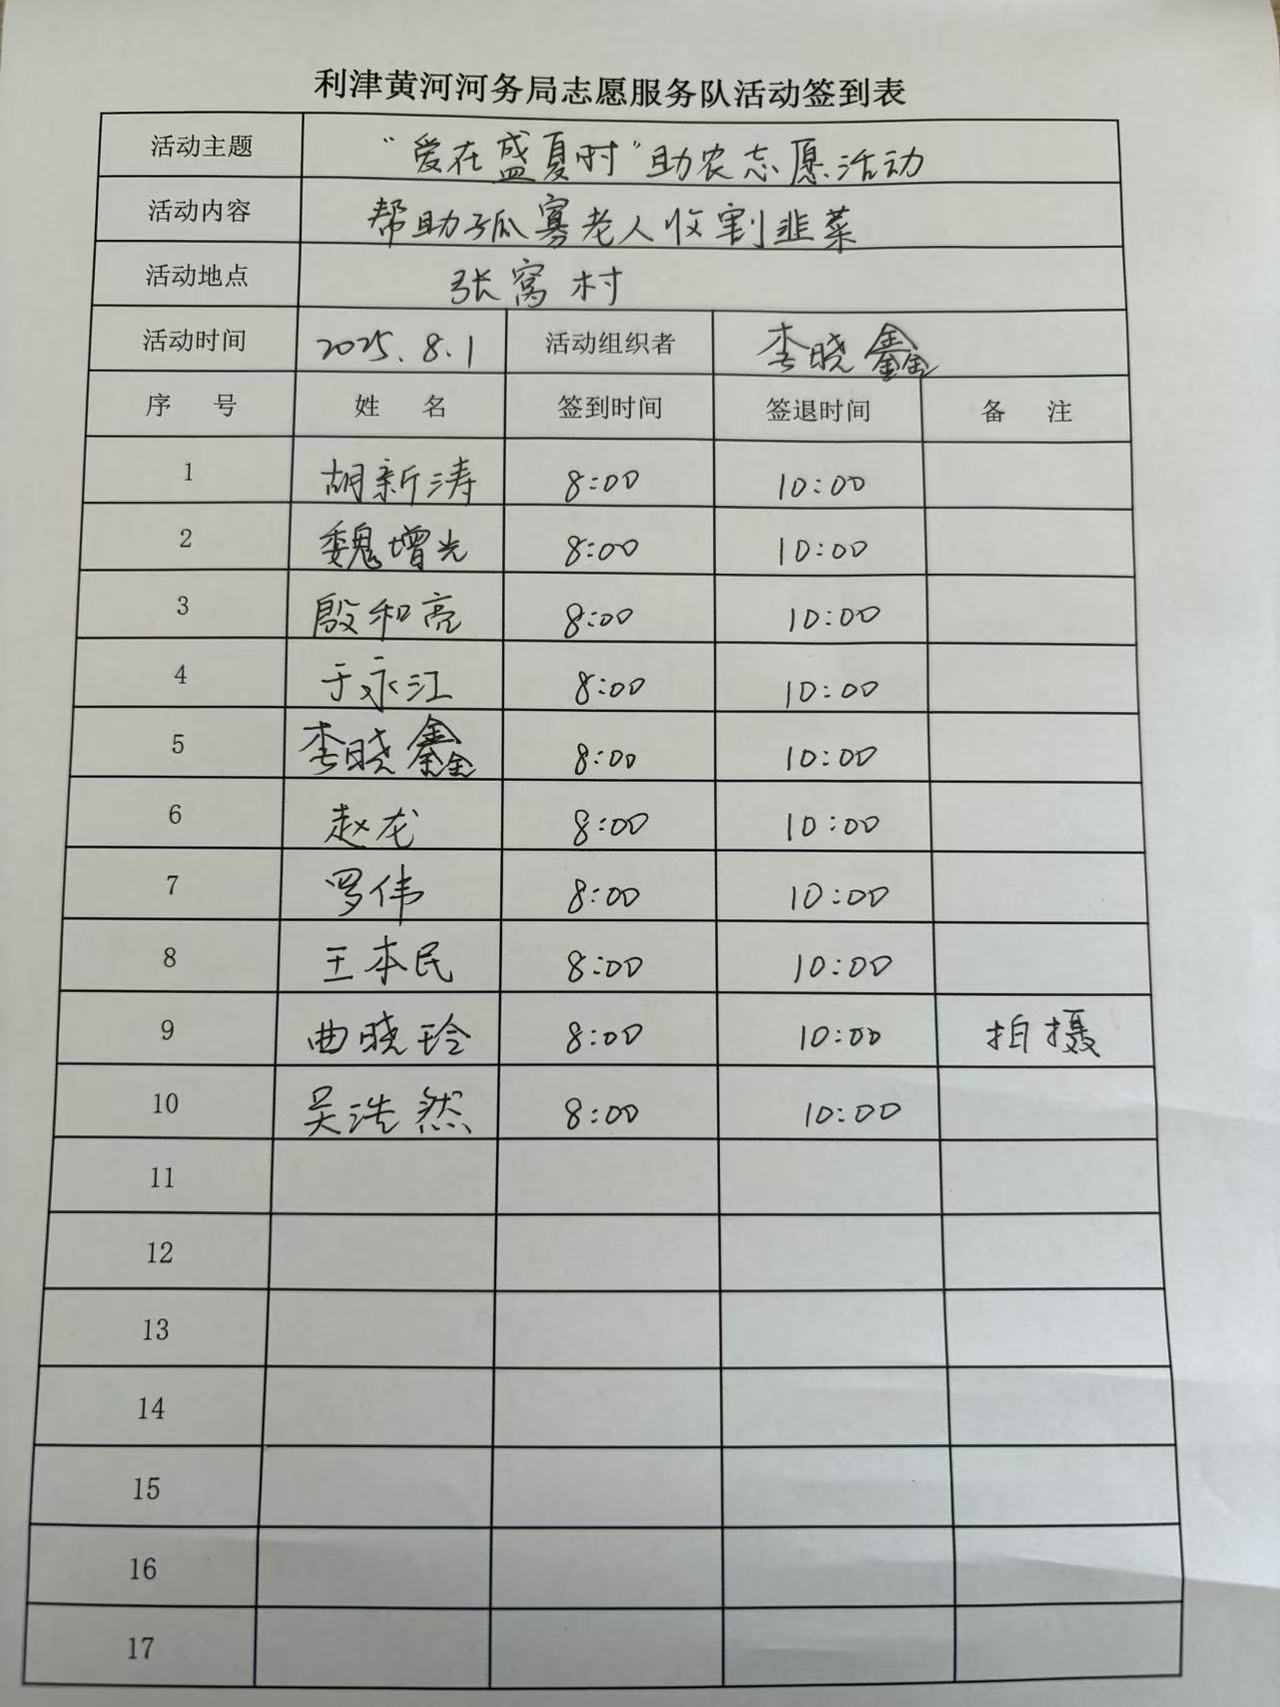 利津黄河河务局志愿服务队活动签到表
活动主题 “爱在盛夏时”助农志愿活动
活动内容 帮助孤寡老人收割韭菜
活动地点 张窝村
活动时间 2025.8.1 活动组织者 李晓鑫
序 号 姓 名 签到时间 签退时间 备 注
1 胡新涛 8:00 10:00
2 魏增光 8:00 10:00
3 殷和亮 8:00 10:00
4 于永江 8:00 10:00
5 李晓鑫 8:00 10:00
6 赵龙 8:00 10:00
7 罗伟 8:00 10:00
8 王本民 8:00 10:00
9 曲晓玲 8:00 10:00 拍摄
10 吴浩然 8:00 10:00
11
12
13
14
15
16
17